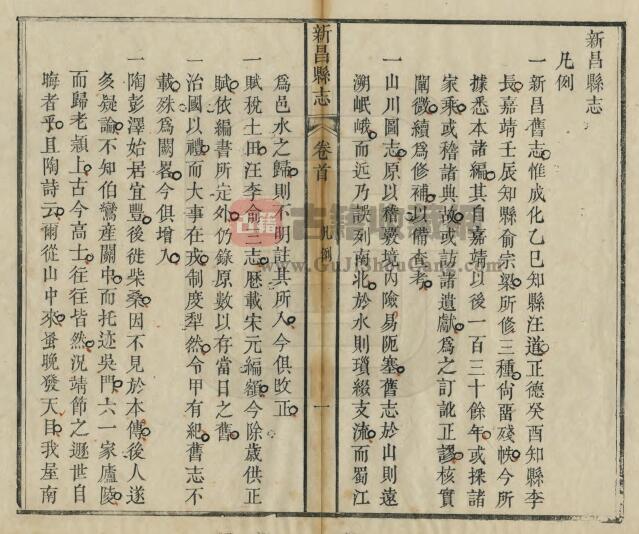 新昌縣志
凡例
一新昌舊志惟成化乙巳知縣汪道正德癸酉知縣李
長嘉靖壬辰知縣俞宗梁所修三種尙畱殘帙今所
據悉本諸編其自嘉靖以後一百三十餘年或採諸
家乘或稽諸典故或訪諸遺獻爲之訂訛正謬核實
闡微續爲修補以備查考
一山川圖志原以稽覈境內險易阨塞舊志於山則遠
溯岷峨而近乃誤列南北於水則瑣綴支流而蜀江
新昌縣志
卷首
凡例
一
爲邑水之歸則不明註其所入今俱改正
一賦稅土田汪李俞三志歷載宋元編額今除歲供正
賦依編書所定外仍錄原數以存當日之舊
一治國以禮而大事在戎制度犁然令甲有紀舊志不
載殊爲闕畧今俱增入
一陶彭澤始居宜豐後徙柴桑因不見於本傳後人遂
多疑論不知伯鸞產關中而托迹吳門六一家廬陵
而歸老潁上古今高士往往皆然況靖節之遯世自
晦者乎且陶詩云爾從山中來蚤晚發天目我屋南
古籍
古籍收藏網
www.GuJiShouCang.com